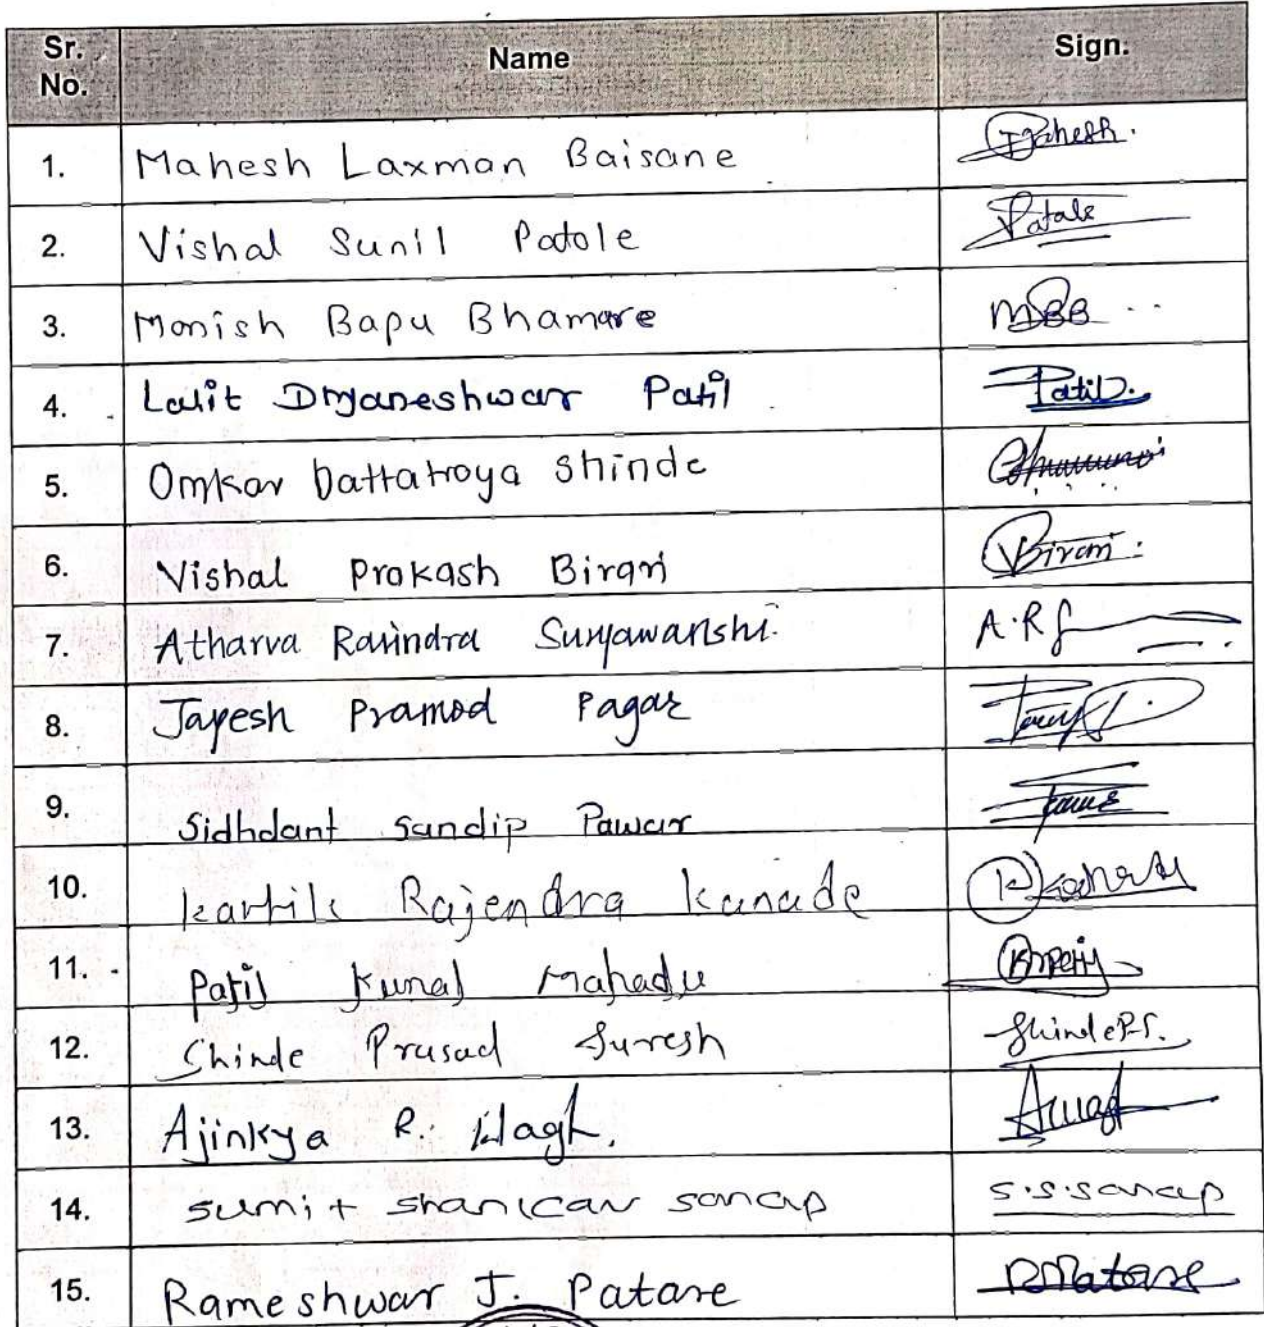 Sr. No. Name Sign.
1. Mahesh Laxman Baisane Mahesh.
2. Vishal Sunil Patole Patole
3. Monish Bapu Bhamare MBB
4. Lalit Dnyaneshwar Patil Patil.
5. Omkar Dattatraya Shinde
6. Vishal Prakash Birari Birari
7. Atharva Ravindra Suryawanshi. A.R.S
8. Jayesh Pramod Pagar
9. Sidhdant Sandip Pawar
10. Kartik Rajendra Kanade
11. Patil Kunal Mahadu
12. Shinde Prasad Suresh Shinde P.S.
13. Ajinkya R. Wagh. Awagh
14. sumit shankar sanap s.s.sanap
15. Rameshwar J. Patare RPatare